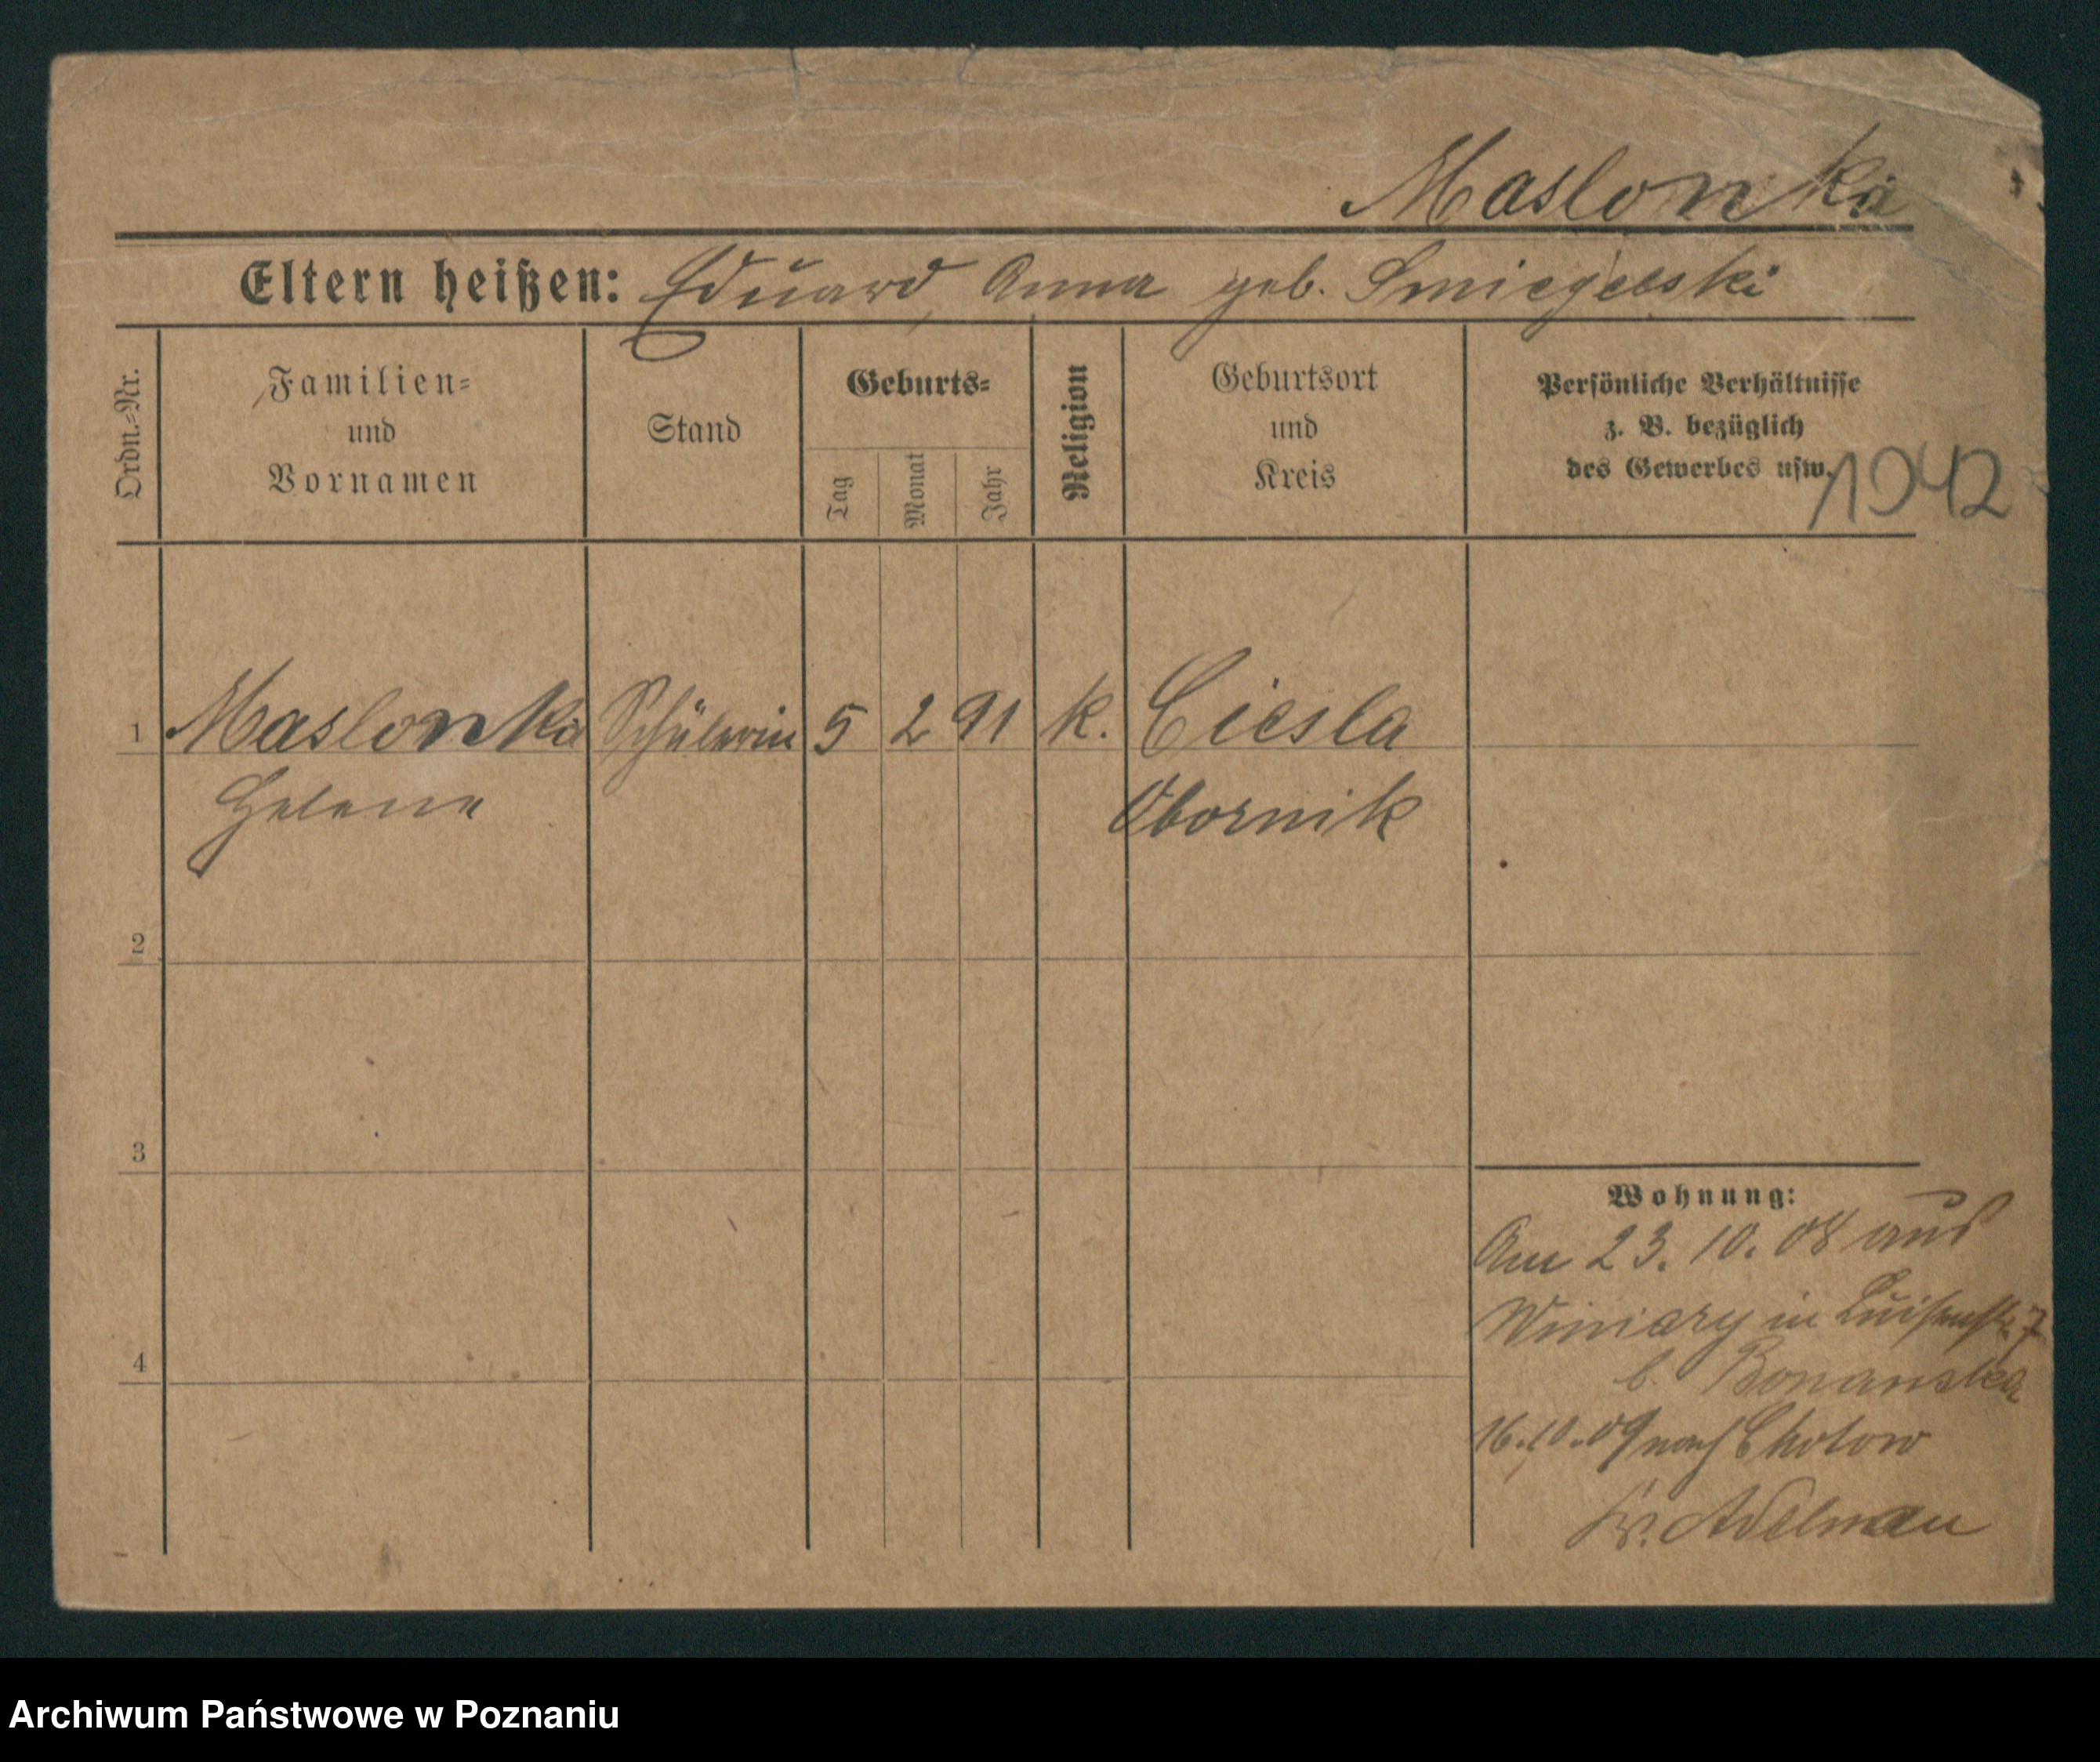 Maslonka
Eltern heißen: Eduard Anna geb. Smiegelski
Ordn.=Nr.
Familien=
und
Vornamen
Stand
Geburts=
Tag
Monat
Jahr
Religion
Geburtsort
und
Kreis
Persönliche Verhältnisse
z. B. bezüglich
des Gewerbes usw.
1042
1 Maslonka Schülerin 5 2 91 k. Ciesla
Helene Obornik
2
3
4
Wohnung:
Am 23. 10. 08 aus
Winiary in Luisenstr. 7
b.
16.10.09 nach Chotow
Kr. Adelnau
Archiwum Państwowe w Poznaniu